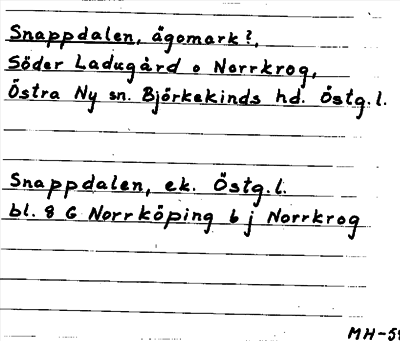 Snappdalen, ägomark?,
Söder Ladugård o Norrkrog,
Östra Ny sn. Björkekinds hd. Östg.l.
Snappdalen, ek. Östg.l.
bl. 8 G Norrköping 6 j Norrkrog